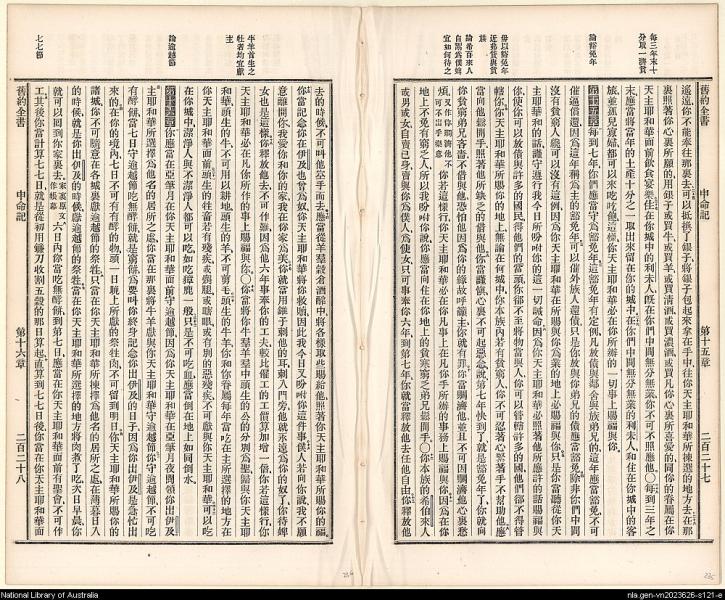 每三年末十
分取一濟貧
論豁免年
毋以豁免年
近勿貸與貧
族
論希百來人
自鬻為僕婢
宜如何待之
舊約全書 申命記 第十五章 二百二十七
遙遠你不能奉往那裏去可以抵換了銀子將銀子包起來拿在手中往你天主耶和華所選擇的地方去在那
裏照著你心裏所願的用銀子或買牛或買羊或買清酒或買濃酒或買凡你心裏所喜愛的同你的眷屬在你
天主耶和華面前飲食宴樂住在你城中的利未人既在你們中間無分無業你不可不照應他○每到三年之
末應當將當年的土產十分之一取出來留在你的城中在你們中間無分無業的利未人和住在你城中的客
旅並孤兒寡婦都可以來吃吃飽使你天主耶和華必在你所辦的一切事上賜福與你
第十五章每到七年你們應當守為豁免年這豁免年有定例凡放債與鄰舍與族弟兄的這年應當豁免不可
催逼償還因為這年稱為主的豁免年可以催外族人還債只是你放與你弟兄的債應當豁免除非你們中間
沒有貧窮人纔可以沒有這例因為你天主耶和華在所賜與你為業的地上必賜福與你只是你當聽從你天
主耶和華的話謹守遵行我今日所吩咐你的這一切誡命因為你天主耶和華必照著他所應許的賜福與
你使你可以放債與許多的國民得他們的當頭你卻不至將物當與人你可以管轄許多的國他們都不得管
轄你你天主耶和華所賜與你的地上無論在何城中你本族內若有貧窮人你不可忍著心緊著手不幫助他應
當向他鬆開手照著他所缺少的借與他你當謹慎心裏不可起惡念說第七年快到了就是豁免年了你就向
你貧窮弟兄吝嗇不借與他恐怕他因為你的緣故呼籲主你就有罪你當賙濟他並且不可因賙濟他心裏愁
煩你若這樣行你天主耶和華必在你凡事上在凡你手所辦的事務上賜福與你因為在你
地上不免有窮乏人所以我吩咐你說你應當向住在你地上的貧寒窮乏弟兄鬆開手○你本族的希伯來人
或男或女自賣己身賣與你為僕人為使女只可事奉你六年到第七年你就當釋放他去任他自由你釋放他
牛羊首生之
牡者均宜獻
主
論逾越節
七七節
去的時候不可叫他空手而去應當從羊羣穀倉酒醡中將各樣取些賜給他照著你天主耶和華所賜你的福
你當記念你在伊及也曾為奴你天主耶和華將你救贖因此我今日又吩咐你這件事僕人若向你說我不願
意離開你我愛你和你的家我在你家為美你就當用錐子刺他的耳刺入門旁他就永遠為你的奴了你待婢
女也是這樣你釋放他去不可作難因為他六年事奉你的工夫較比僱工的工價算加增一倍你若這樣行你
天主耶和華必在凡你所作的事上賜福與你○你當將你牛羣羊羣中頭生的公的分別為聖歸與你天主耶
和華頭生的牛不可用以耕地頭生的羊不可剪毛頭生的羊你和你眷屬每年當吃在主所選擇的地方在
你天主耶和華面前頭生的牲畜若有殘疾或瘸腿或瞎眼或有別的惡殘疾不可獻與你天主耶和華可以吃
在你城中潔淨人與不潔淨人都可以吃如吃獐鹿一般只是不可吃血應當倒在地上如同倒水
第十六章你應當在亞筆月在你天主耶和華面前守逾越節因為你天主耶和華在亞筆月夜間領你出伊及
主耶和華所選擇為他名的居所之處你當在那裏將牛羊獻與你天主耶和華守逾越節你守逾越節不可吃
有酵餅當七日守逾越節吃無酵餅就是窮餅為要叫你終身記念你出伊及的日子因為你出伊及是急忙出
來的在你的境內七日不可有有酵的物頭一日晚上所獻的祭牲肉不可留到明日你天主耶和華所賜你的
諸城你不可隨意在各城裏獻逾越節的祭牲只當在你天主耶和華所揀擇為他名的居所之處在薄暮日入
的時候就是你出伊及的時候獻逾越節的祭牲當在你天主耶和華所揀擇的地方將肉煮了吃次日早晨你
就可以回到你家裏去六日內你當吃無酵餅到第七日應當在你天主耶和華面前有聖會不可作
工其後你當計算七七日就是從初用鐮刀收割五穀的那日算起直算到七七日後你當在你天主耶和華面
舊約全書 申命記 第十六章 二百二十八
National Library of Australia
nla.gen-vn2023626-s121-e